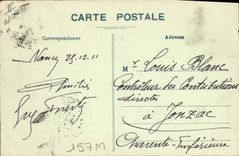 CARTE POSTALE
Correspondance
Adresse
Nancy 28.12.11
Amitiés
Mr Louis Blanc
Contrôleur des Contributions
directes
à Jonzac
Charente Inférieure
157M